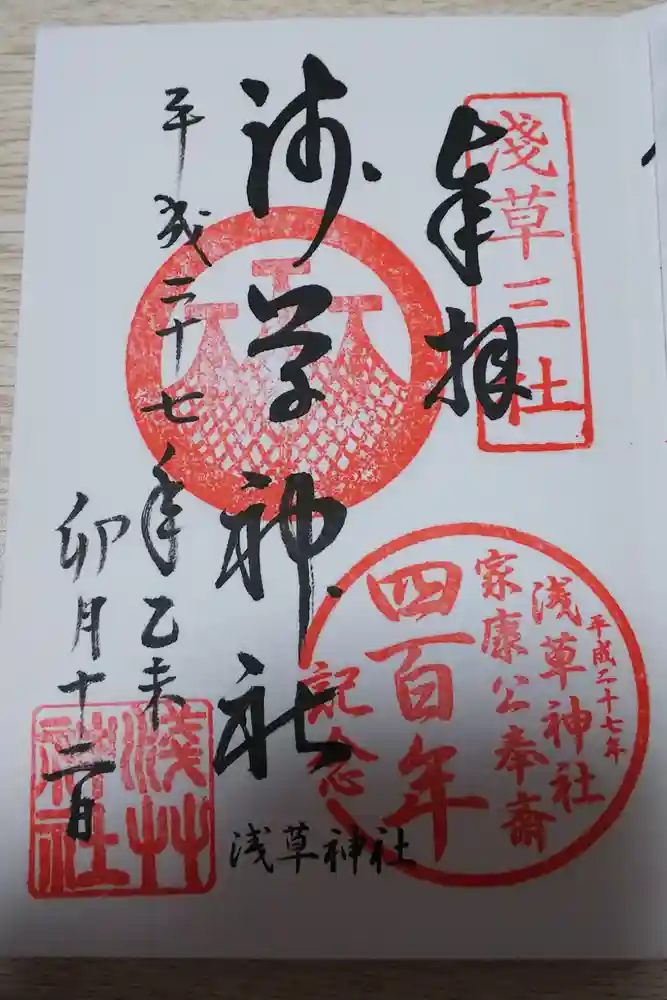 淺草三社
奉拝
浅草神社
平成二十七年乙未
卯月十二日
平成二十七年
浅草神社
家康公奉斎
四百年
記念
淺艸
神社
浅草神社